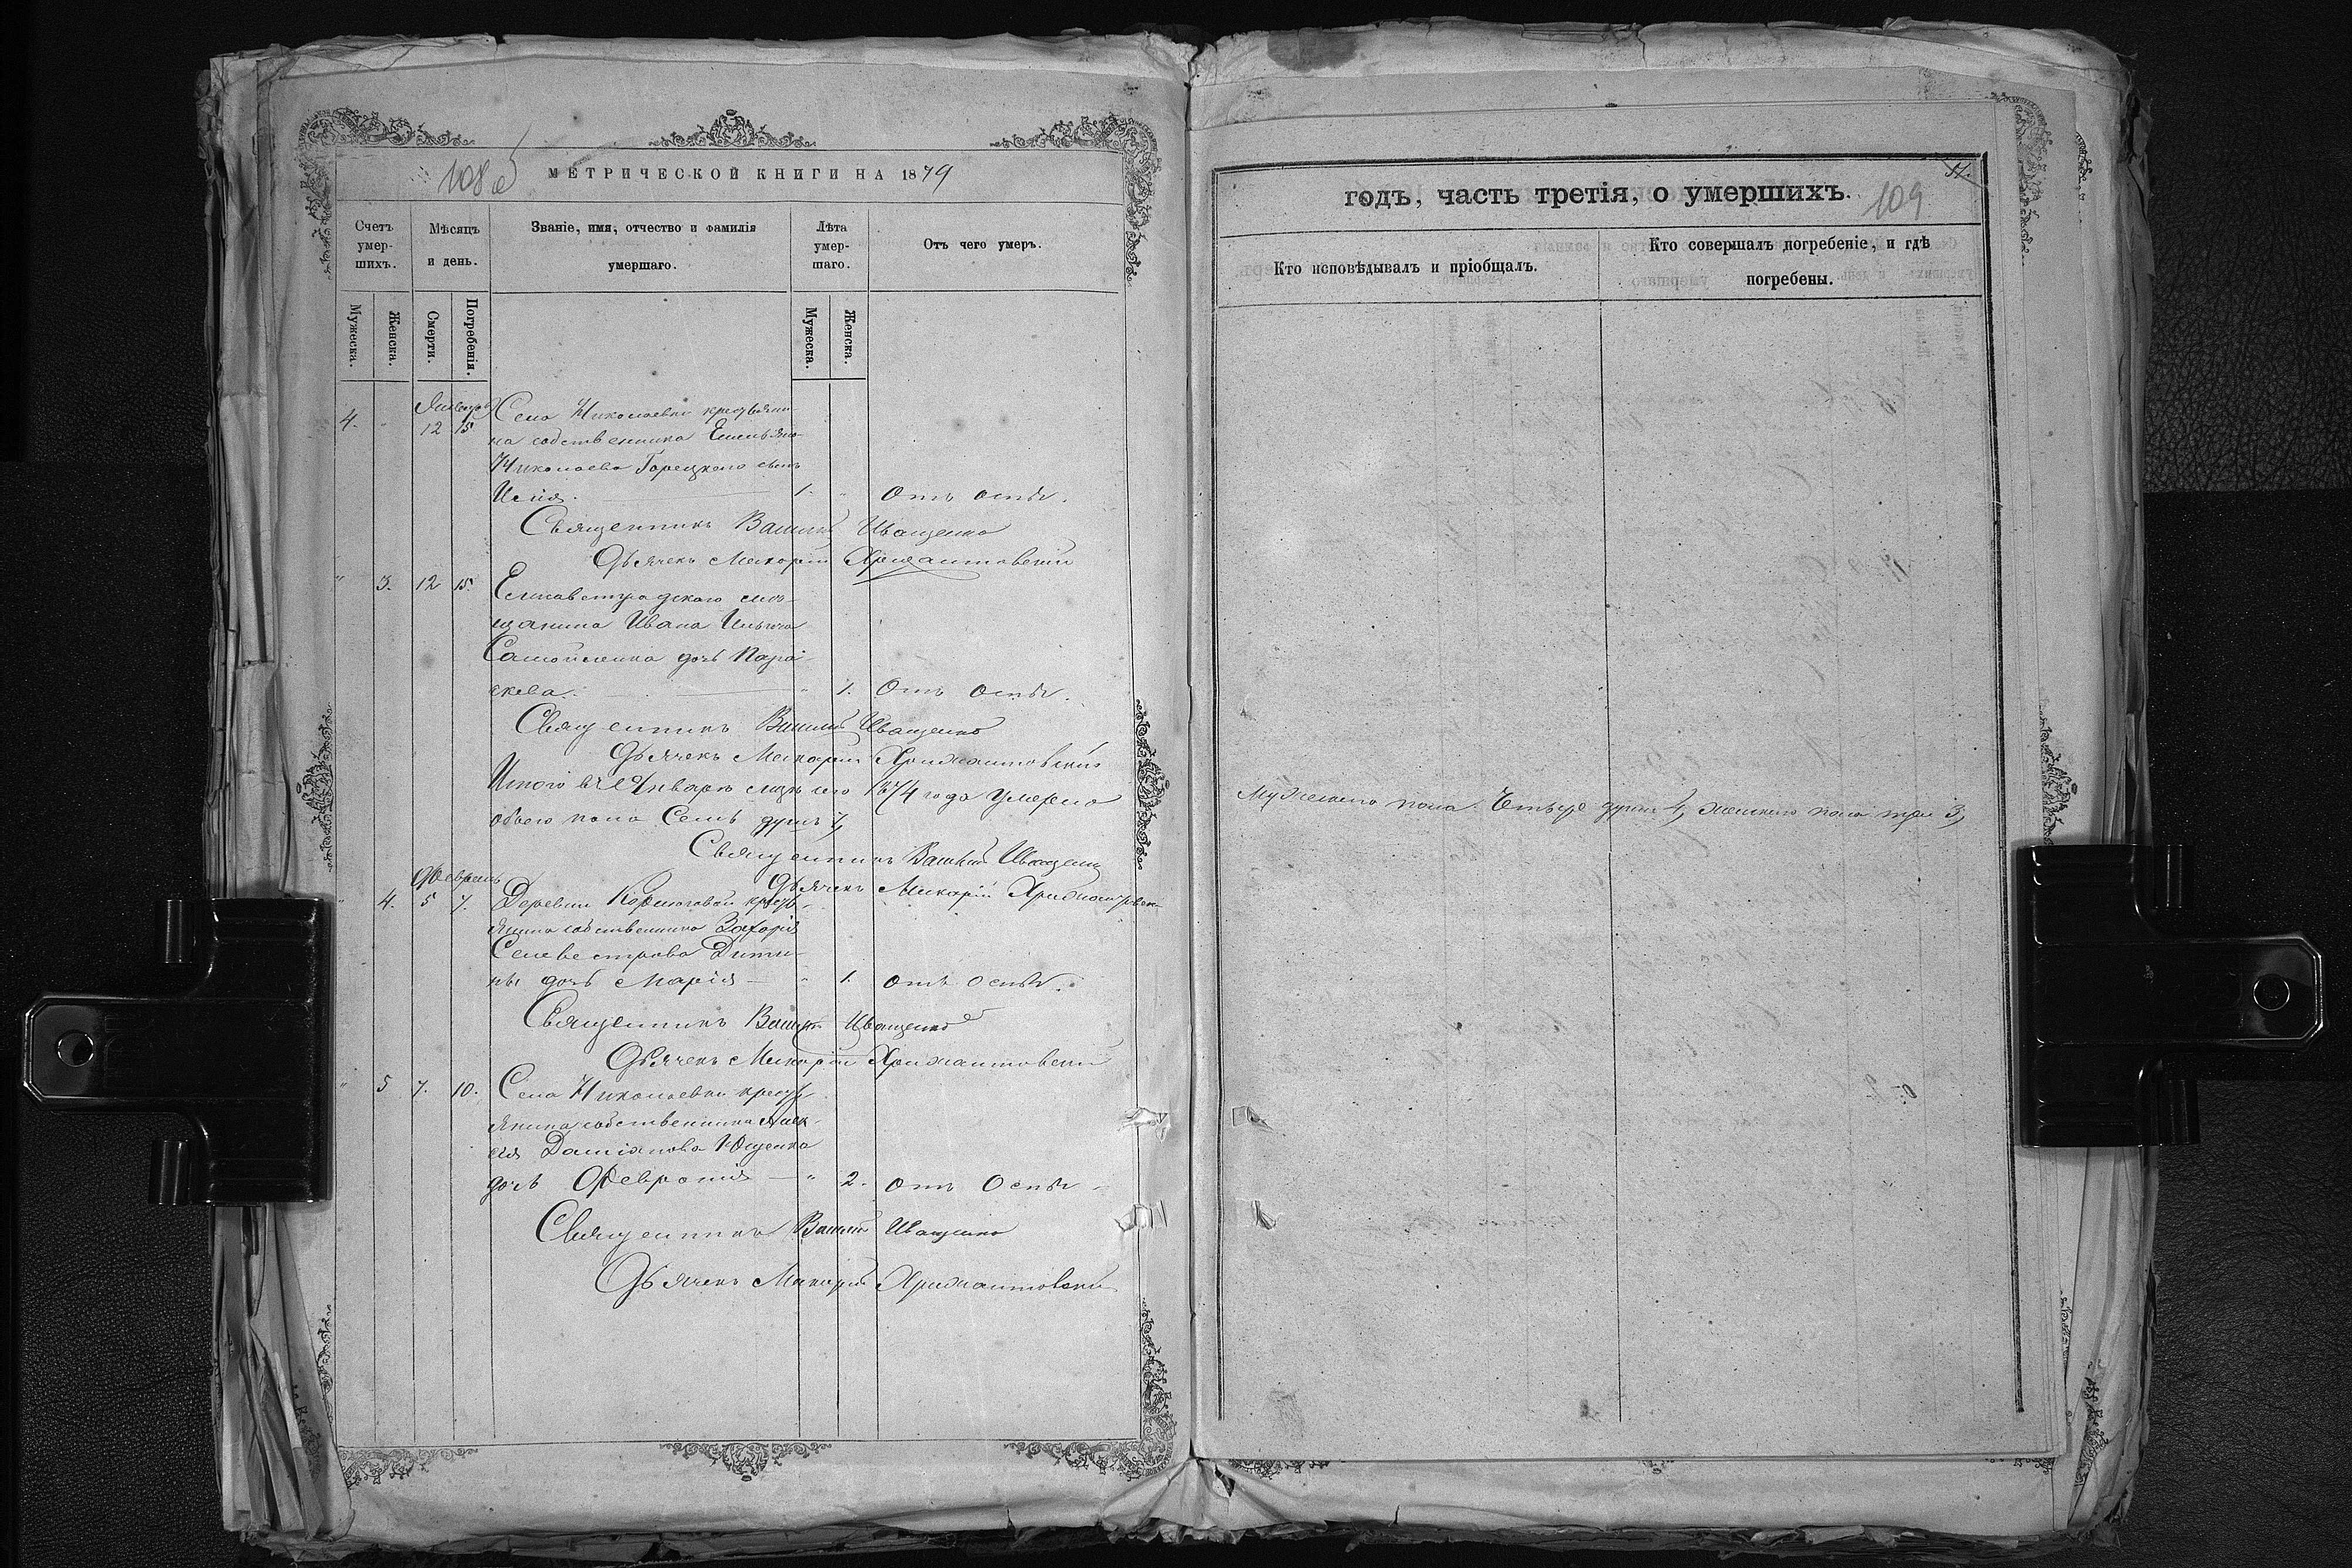 108 об
МЕТРИЧЕСКОЙ КНИГИ НА 1879
Счетъ умер- шихъ.
Мѣсяцъ и день.
Званіе, имя, отчество и фамилія умершаго.
Лѣта умер- шаго.
Отъ чего умеръ.
Мужеска.
Женска.
Смерти.
Погребенія.
Мужеска.
Женска.
Января
4. " 12 15 Села Николаевки крестьяни-
на собственника Емельяна
Николаева Горецкаго сынъ
Исаія. 1. " Отъ оспы.
Священникъ Василій Иващенко
Дьячекъ Макарій Хрижантовскій
" 3. 12 15. Елисаветградскаго мѣ-
щанина Ивана Ильина
Самойленка дочь Пара-
скева. " 1. Отъ оспы.
Священникъ Василій Иващенко
Дьячекъ Макарій Хрижантовскій
Итого въ Январѣ мцѣ сего 1879 года умерло
обоего пола Семь душъ 7,
Священникъ Василій Иващенко
Дьячекъ Макарій Хрижантовскій
Февраль
" 4. 5 7. Деревни кресть-
янина собственника Захарія
Селевестрова Дити-
ны дочь Марія " 1. отъ оспы.
Священникъ Василій Иващенко
Дьячекъ Макарій Хрижантовскій
" 5 7. 10. Села Николаевки кресть-
янина собственника Алек-
сія Даміанова Ющенка
дочь Февронія " 2. отъ Оспы
Священникъ Василій Иващенко
Дьячекъ Макарій Хрижантовскій
годъ, часть третія, о умершихъ.
109
Кто исповѣдывалъ и пріобщалъ.
Кто совершалъ погребеніе, и гдѣ погребены.
Мужескаго пола Четыре души 4, женскаго пола три 3,